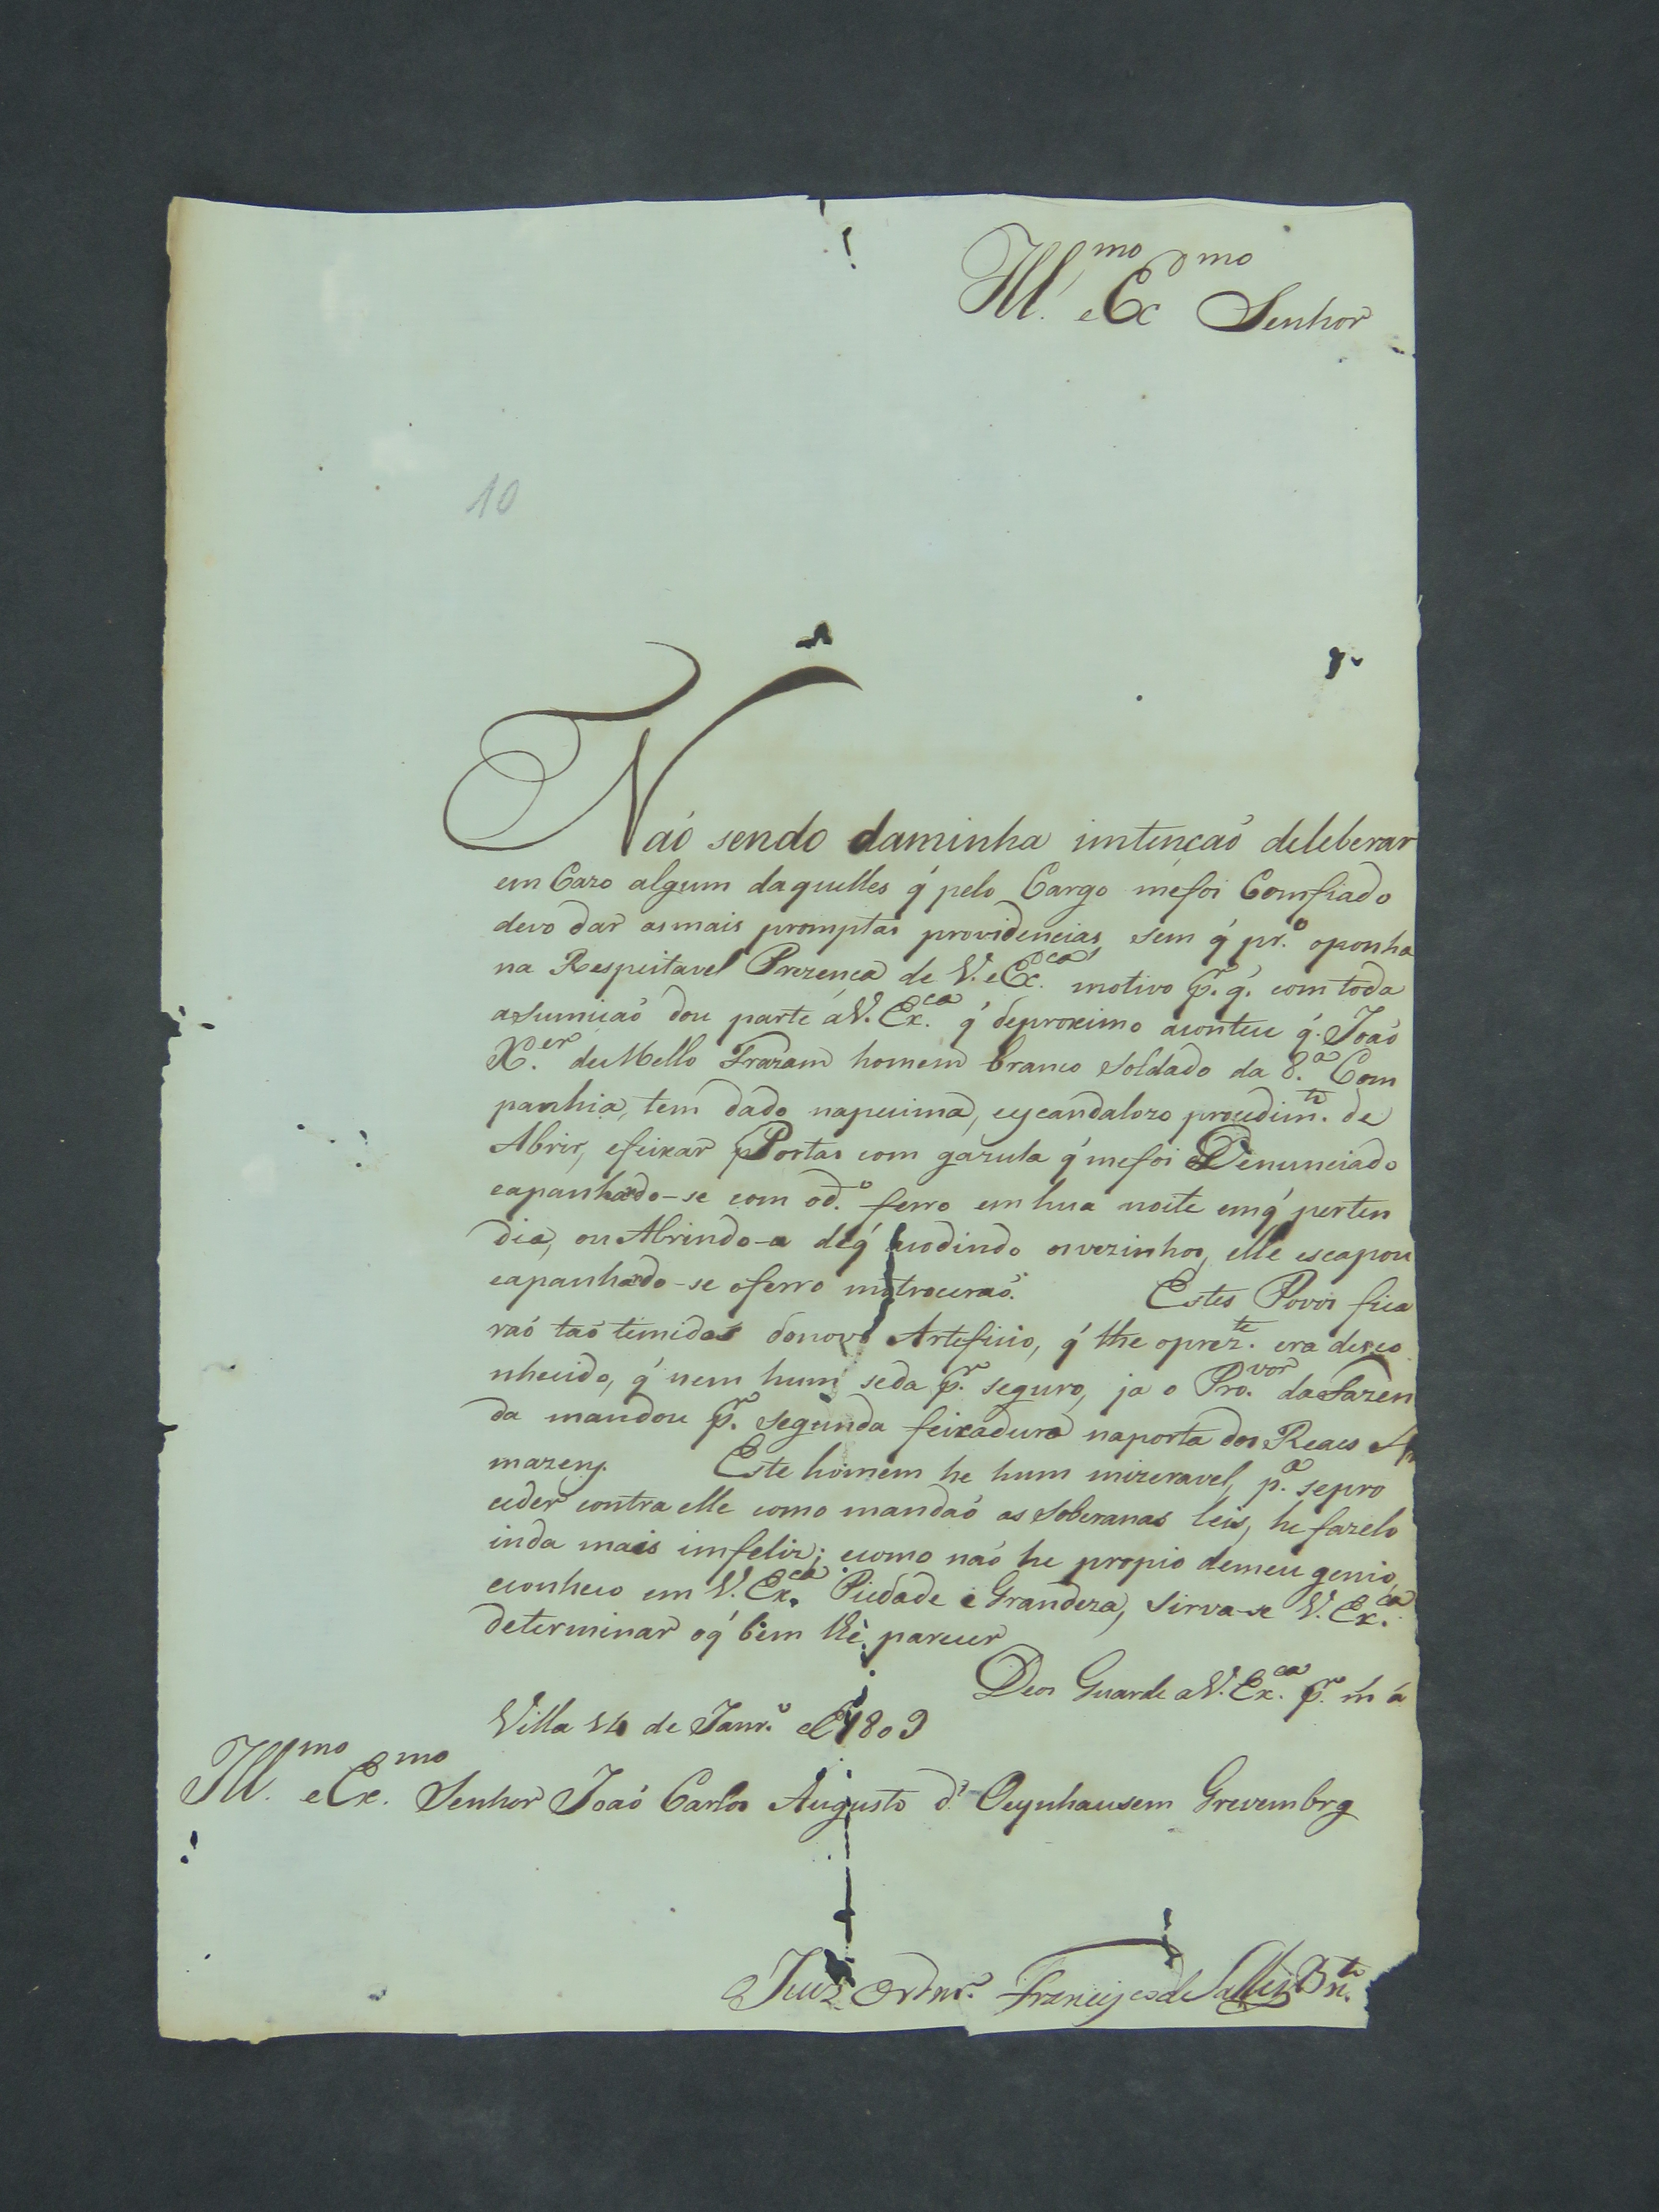 Ill.mo e Ex.mo Senhor
10
Naõ sendo daminha imtençaõ deleberar
em Cazo algum daquelles q' pelo Cargo mefoi Comfiado
devo dar asmais promptas providencias, sem q' pr.o oponha
na Respeitavel Prezença de V. eEx.ca motivo p.r q'. com toda
asumiçaõ dou parte áV. Ex.ca q' deproximo aconteu q'. Joaõ
X.er deMello Frazam homem branco soldado da 8.a Com
panhia, tem dado napecima, eyscandalozo procedim.to de
Abrir, efeixar Portas com gazula q' mefoi Denunciado
eapanhado-se com od.o ferro em hua noite emq' perten
dia, ou Abrindo-a deq' acodindo osvezinhos, elle escapou
eapanhado-se oferro
Estes Povos fica
raõ taõ temidos donovo Arteficio, q' lhe oprez.te era desco
nhecido, q' nem hum seda p.r seguro, ja o Pro.vor daFazen
da mandou p.r segunda feixadura naporta dos Reaes A
mazens. Este homem he hum mizeravel, p.a sepro
ceder contra elle como mandaõ as soberanas leis, he fazelo
inda mais imfeliz; ecomo naõ he propio demeu genio,
econheco em V. Ex.ca Piedade e Grandeza, sirva-se V. Ex.ca
determinar oq' bem lhe parecer
Deos Guarde aV. Ex.ca p.r m a
Villa 14 de Janr.o de 1809
Ill.mo eEx.mo Senhor Joaõ Carlos Augusto d' Oeynhausem Grevembrg
OJuiz Ordnr.o Francisco de Salles Br.to